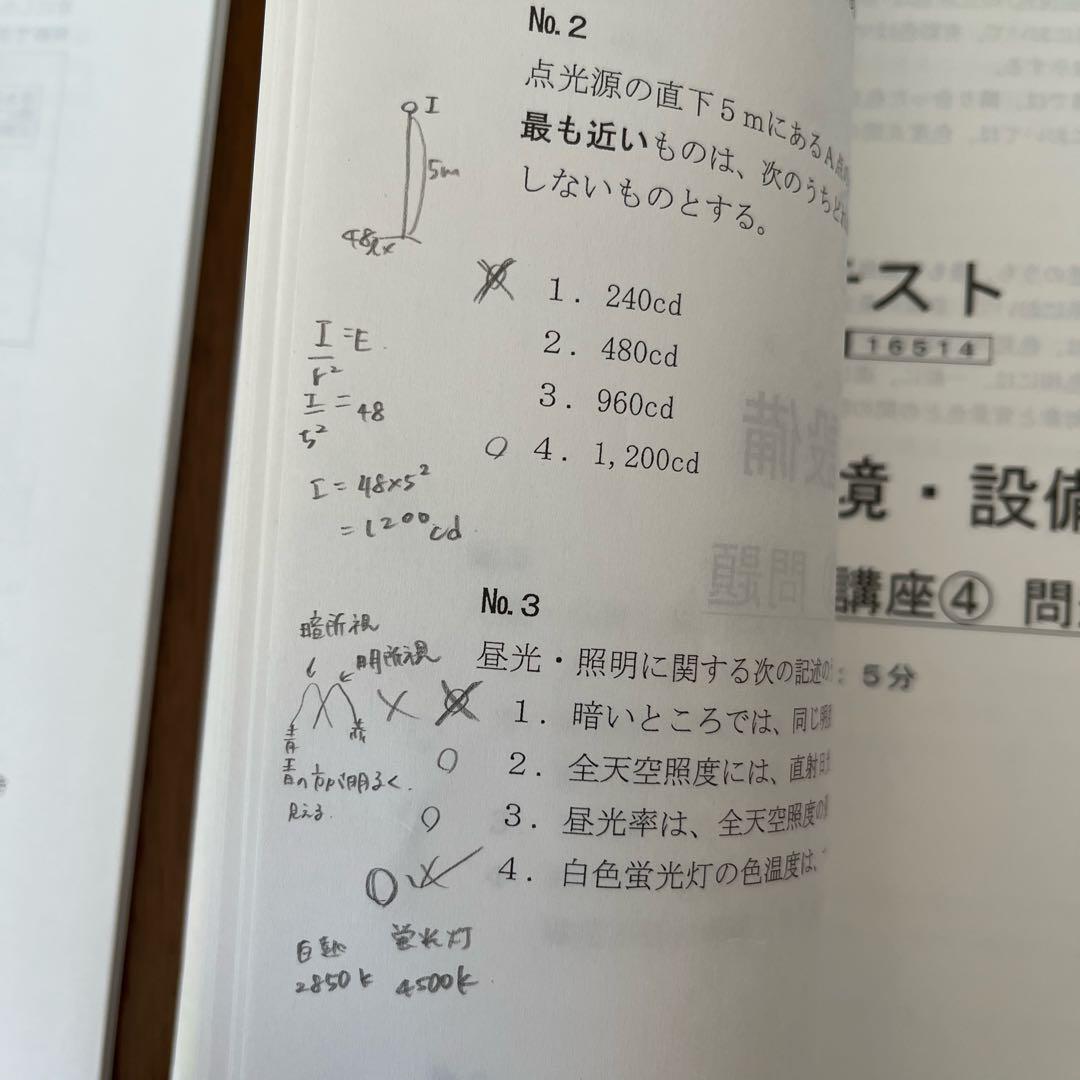 No. 2
点光源の直下5mにあるA点の
最も近いものは、次のうちどれ
しないものとする。
I
5m
48lx
1. 240cd
2. 480cd
3. 960cd
4. 1,200cd
I/r² = E
I/5² = 48
I = 48×5²
= 1200cd
No. 3
昼光・照明に関する次の記述の
1. 暗いところでは、同じ明
2. 全天空照度には、直射日
3. 昼光率は、全天空照度の
4. 白色蛍光灯の色温度は、
暗所視
明所視
青
赤
青の方が明るく
見える
白熱
2850K
蛍光灯
4500K
テスト
16514
境・設備
講座④ 問
: 5分